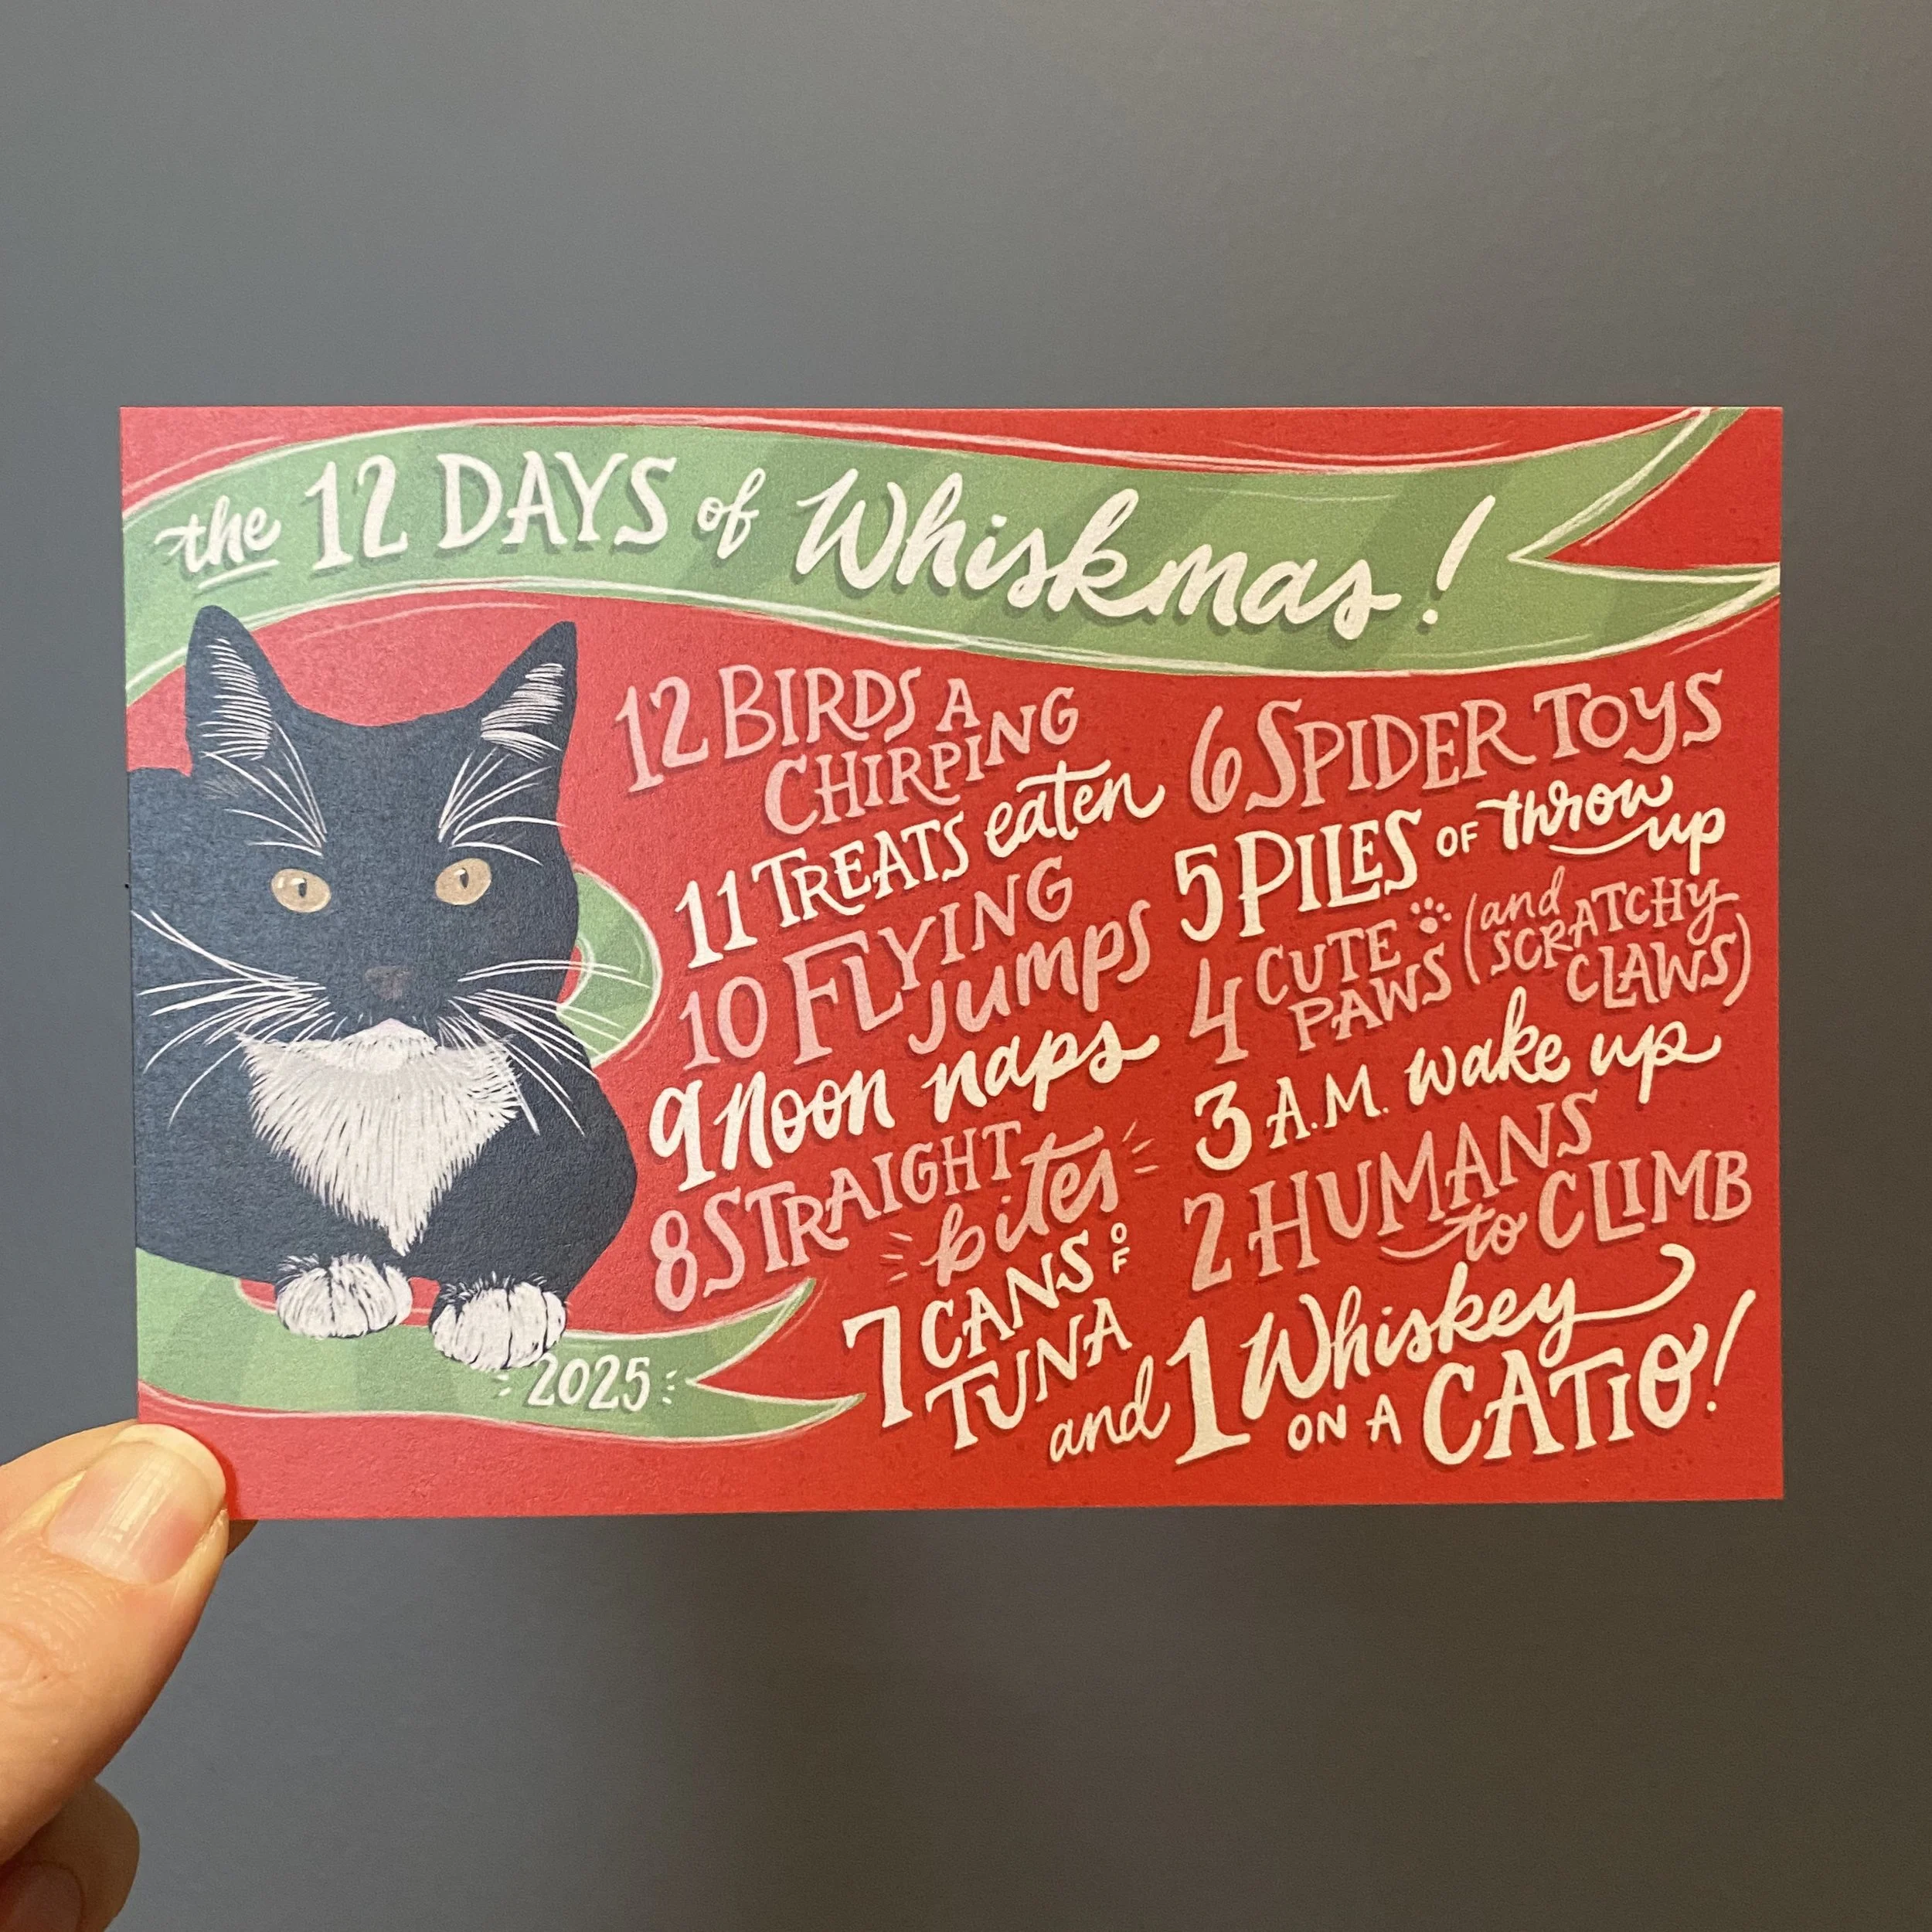 the 12 DAYS of Whiskmas!
12 BIRDS A
CHIRPING
11 TREATS eaten
10 FLYING
jumps
9 Noon naps
8 STRAIGHT
bites
7 CANS OF
TUNA
6 SPIDER TOYS
5 PILES OF throw
up
4 CUTE
PAWS (and
SCRATCHY
CLAWS)
3 A.M. wake up
2 HUMANS
to CLIMB
and 1 Whiskey
ON A CATIO!
2025